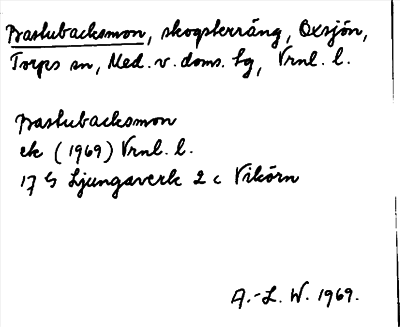 Bastubacksmon, skogsterräng, Oxsjön,
Torps sn, Med. v. doms. tg, Vrnl. l.
Bastubacksmon
ek (1969) Vrnl. l.
17 G Ljungaverk 2 c Vikörn
A.-L. W. 1969.